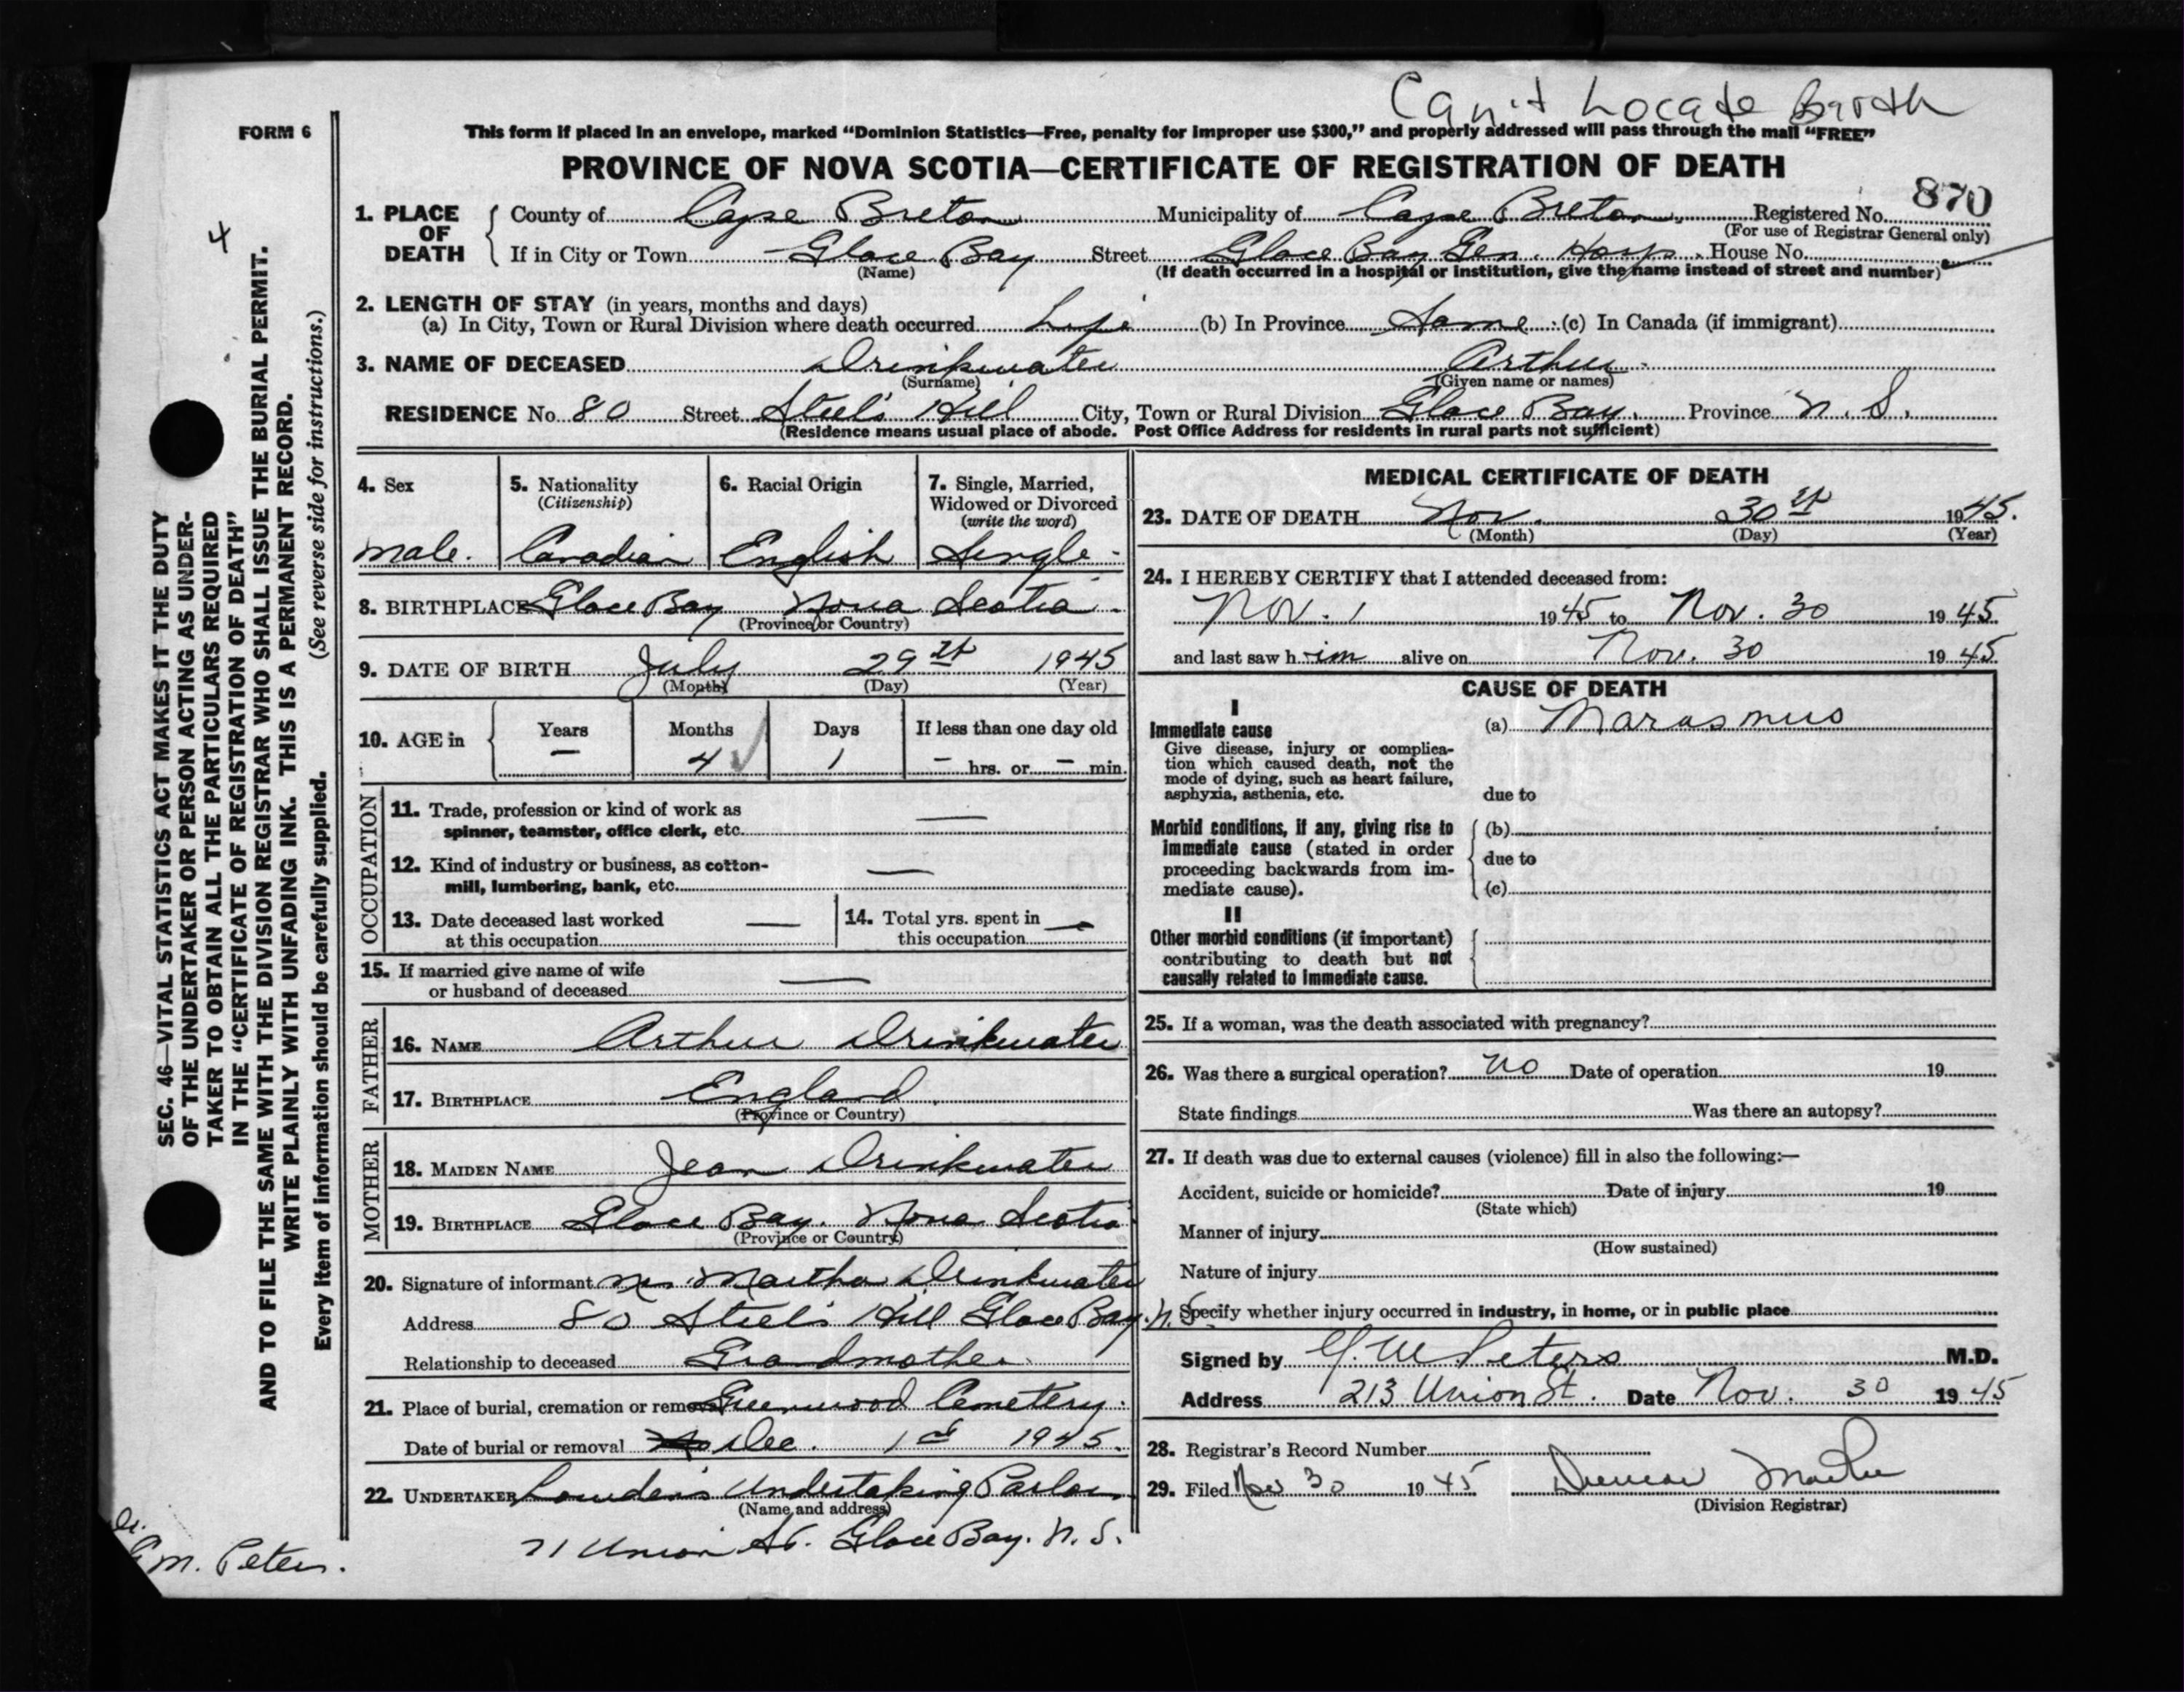 Can't Locate Birth
FORM 6
This form if placed in an envelope, marked “Dominion Statistics—Free, penalty for improper use $300,” and properly addressed will pass through the mail “FREE”
PROVINCE OF NOVA SCOTIA—CERTIFICATE OF REGISTRATION OF DEATH
870
1. PLACE OF DEATH { County of Cape Breton Municipality of Cape Breton Registered No.
(For use of Registrar General only)
If in City or Town Glace Bay Street Glace Bay Gen. Hosp. House No.
(Name) (If death occurred in a hospital or institution, give the name instead of street and number)
2. LENGTH OF STAY (in years, months and days)
(a) In City, Town or Rural Division where death occurred Life (b) In Province Same (c) In Canada (if immigrant)
3. NAME OF DECEASED Drinkwater Arthur
(Surname) (Given name or names)
RESIDENCE No. 80 Street Steel's Hill City, Town or Rural Division Glace Bay. Province N. S.
(Residence means usual place of abode. Post Office Address for residents in rural parts not sufficient)
4. Sex 5. Nationality 6. Racial Origin 7. Single, Married,
(Citizenship) Widowed or Divorced
(write the word)
Male. Canadian English Single
8. BIRTHPLACE Glace Bay Nova Scotia
(Province or Country)
9. DATE OF BIRTH July 29th 1945
(Month) (Day) (Year)
10. AGE in { Years Months Days If less than one day old
— 4 1 — hrs. or — min.
OCCUPATION
11. Trade, profession or kind of work as
spinner, teamster, office clerk, etc. —
12. Kind of industry or business, as cotton-
mill, lumbering, bank, etc. —
13. Date deceased last worked 14. Total yrs. spent in
at this occupation — this occupation —
15. If married give name of wife
or husband of deceased —
FATHER
16. NAME Arthur Drinkwater
17. BIRTHPLACE England
(Province or Country)
MOTHER
18. MAIDEN NAME Jean Drinkwater
19. BIRTHPLACE Glace Bay. Nova Scotia
(Province or Country)
20. Signature of informant Mrs Martha Drinkwater
Address 80 Steel's Hill Glace Bay. N. S.
Relationship to deceased Grandmother
21. Place of burial, cremation or removal Greenwood Cemetery.
Date of burial or removal Dec. 1st 1945.
22. UNDERTAKER Undertaking Parlor
(Name and address)
71 Union St. Glace Bay. N. S.
MEDICAL CERTIFICATE OF DEATH
23. DATE OF DEATH Nov. 30th 1945.
(Month) (Day) (Year)
24. I HEREBY CERTIFY that I attended deceased from:
Nov. 1 1945 to Nov. 30 1945.
and last saw him alive on Nov. 30 1945.
CAUSE OF DEATH
I
Immediate cause (a) Marasmus
Give disease, injury or complica-
tion which caused death, not the
mode of dying, such as heart failure,
asphyxia, asthenia, etc. due to
Morbid conditions, if any, giving rise to (b)
immediate cause (stated in order due to
proceeding backwards from im-
mediate cause). (c)
II
Other morbid conditions (if important)
contributing to death but not
causally related to immediate cause.
25. If a woman, was the death associated with pregnancy?
26. Was there a surgical operation? No Date of operation 19
State findings Was there an autopsy?
27. If death was due to external causes (violence) fill in also the following:—
Accident, suicide or homicide? Date of injury 19
(State which)
Manner of injury
(How sustained)
Nature of injury
Specify whether injury occurred in industry, in home, or in public place
Signed by G. M. Peters M.D.
Address 213 Union St. Date Nov. 30 1945
28. Registrar's Record Number
29. Filed Nov 30 1945
(Division Registrar)
4
SEC. 46—VITAL STATISTICS ACT MAKES IT THE DUTY
OF THE UNDERTAKER OR PERSON ACTING AS UNDER-
TAKER TO OBTAIN ALL THE PARTICULARS REQUIRED
IN THE “CERTIFICATE OF REGISTRATION OF DEATH”
AND TO FILE THE SAME WITH THE DIVISION REGISTRAR WHO SHALL ISSUE THE BURIAL PERMIT.
WRITE PLAINLY WITH UNFADING INK. THIS IS A PERMANENT RECORD.
Every item of information should be carefully supplied. (See reverse side for instructions.)
G M. Peters.